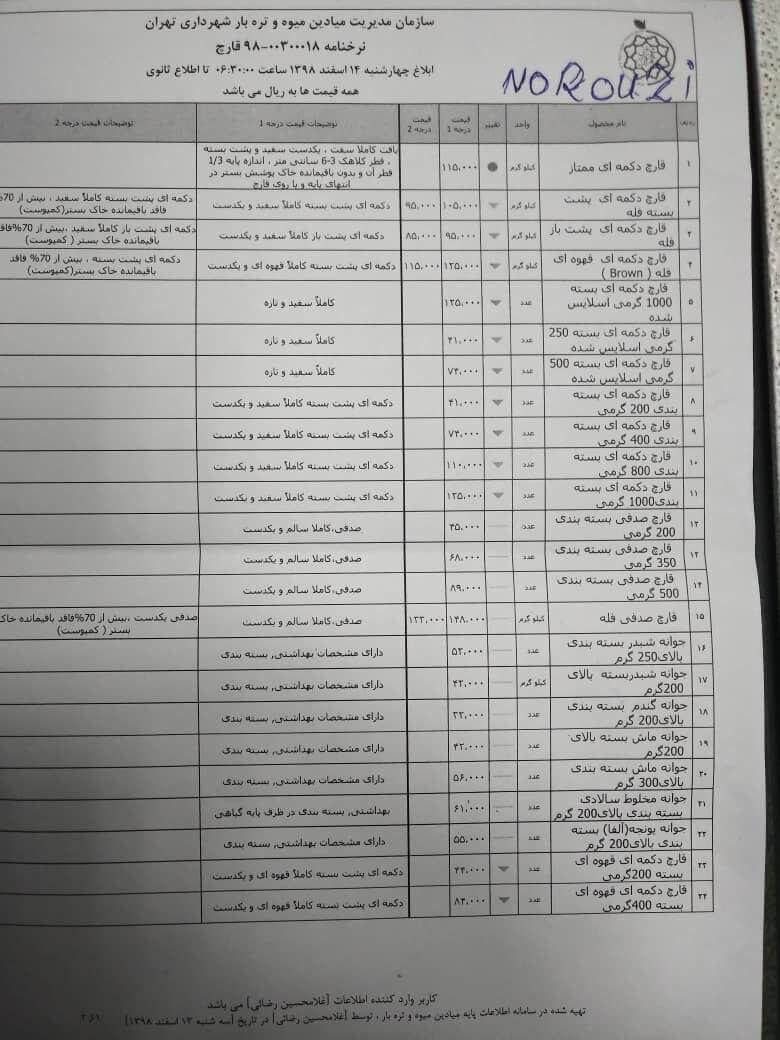 سازمان مدیریت میادین میوه و تره بار شهرداری تهران
نرخنامه ۰۰۳۰۰۰۱۸-۹۸ قارچ
ابلاغ چهارشنبه ۱۴ اسفند ۱۳۹۸ ساعت ۰۶:۳۰:۰۰ تا اطلاع ثانوی
همه قیمت ها به ریال می باشد
NOROUZi
ردیف نام محصول واحد تغییر قیمت درجه 1 قیمت درجه 2 توضیحات قیمت درجه 1 توضیحات قیمت درجه 2
۱ قارچ دکمه ای ممتاز کیلو گرم ۱۱۵،۰۰۰ بافت کاملا سفت ، یکدست سفید و پشت بسته
، قطر کلاهک 3-6 سانتی متر ، اندازه پایه 1/3
قطر آن و بدون باقیمانده خاک پوشش بستر در
انتهای پایه و یا روی قارچ
۲ قارچ دکمه ای پشت بسته فله کیلو گرم ۱۰۵،۰۰۰ ۹۵،۰۰۰ دکمه ای پشت بسته کاملاً سفید و یکدست دکمه ای پشت بسته کاملاً سفید ، بیش از 70%
فاقد باقیمانده خاک بستر(کمپوست)
۳ قارچ دکمه ای پشت باز فله کیلو گرم ۹۵،۰۰۰ ۸۵،۰۰۰ دکمه ای پشت باز کاملاً سفید و یکدست دکمه ای پشت باز کاملاً سفید ،بیش از 70%فاقد
باقیمانده خاک بستر ( کمپوست)
۴ قارچ دکمه ای قهوه ای فله ( Brown ) کیلو گرم ۱۲۵،۰۰۰ ۱۱۵،۰۰۰ دکمه ای پشت بسته کاملاً قهوه ای و یکدست دکمه ای پشت بسته ، بیش از 70% فاقد
باقیمانده خاک بستر(کمپوست)
۵ قارچ دکمه ای بسته 1000 گرمی اسلایس شده عدد ۱۲۵،۰۰۰ کاملاً سفید و تازه
۶ قارچ دکمه ای بسته 250 گرمی اسلایس شده عدد ۴۱،۰۰۰ کاملاً سفید و تازه
۷ قارچ دکمه ای بسته 500 گرمی اسلایس شده عدد ۷۴،۰۰۰ کاملاً سفید و تازه
۸ قارچ دکمه ای بسته بندی 200 گرمی عدد ۴۱،۰۰۰ دکمه ای پشت بسته کاملاً سفید و یکدست
۹ قارچ دکمه ای بسته بندی 400 گرمی عدد ۷۴،۰۰۰ دکمه ای پشت بسته کاملاً سفید و یکدست
۱۰ قارچ دکمه ای بسته بندی 800 گرمی عدد ۱۱۰،۰۰۰ دکمه ای پشت بسته کاملاً سفید و یکدست
۱۱ قارچ دکمه ای بسته بندی1000 گرمی عدد ۱۲۵،۰۰۰ دکمه ای پشت بسته کاملاً سفید و یکدست
۱۲ قارچ صدفی بسته بندی 200 گرمی عدد ۴۵،۰۰۰ صدفی،کاملا سالم و یکدست
۱۳ قارچ صدفی بسته بندی 350 گرمی عدد ۶۸،۰۰۰ صدفی،کاملا سالم و یکدست
۱۴ قارچ صدفی بسته بندی 500 گرمی عدد ۸۹،۰۰۰ صدفی،کاملا سالم و یکدست
۱۵ قارچ صدفی فله کیلو گرم ۱۴۸،۰۰۰ ۱۳۳،۰۰۰ صدفی،کاملا سالم و یکدست صدفی یکدست ،بیش از 70%فاقد باقیمانده خاک
بستر ( کمپوست)
۱۶ جوانه شبدر بسته بندی بالای250 گرم عدد ۵۲،۰۰۰ دارای مشخصات بهداشتی, بسته بندی
۱۷ جوانه شبدربسته بالای 200گرم کیلو گرم ۴۲،۰۰۰ دارای مشخصات بهداشتی, بسته بندی
۱۸ جوانه گندم بسته بندی بالای200 گرم عدد ۳۲،۰۰۰ دارای مشخصات بهداشتی, بسته بندی
۱۹ جوانه ماش بسته بالای 200گرم عدد ۴۲،۰۰۰ دارای مشخصات بهداشتی, بسته بندی
۲۰ جوانه ماش بسته بندی بالای300 گرم عدد ۵۶،۰۰۰ دارای مشخصات بهداشتی, بسته بندی
۲۱ جوانه مخلوط سالادی بسته بندی بالای200 گرم عدد ۶۱،۰۰۰ بهداشتی, بسته بندی در ظرف پایه گیاهی
۲۲ جوانه یونجه(آلفا) بسته بندی بالای200 گرم عدد ۵۵،۰۰۰ دارای مشخصات بهداشتی, بسته بندی
۲۳ قارچ دکمه ای قهوه ای بسته 200گرمی عدد ۴۴،۰۰۰ دکمه ای پشت بسته کاملاً قهوه ای و یکدست
۲۴ قارچ دکمه ای قهوه ای بسته 400گرمی عدد ۸۴،۰۰۰ دکمه ای پشت بسته کاملاً قهوه ای و یکدست
کاربر وارد کننده اطلاعات [غلامحسین رضائی] می باشد
تهیه شده در سامانه اطلاعات پایه میادین میوه و تره بار ، توسط [غلامحسین رضائی] در تاریخ [سه شنبه ۱۳ اسفند ۱۳۹۸]